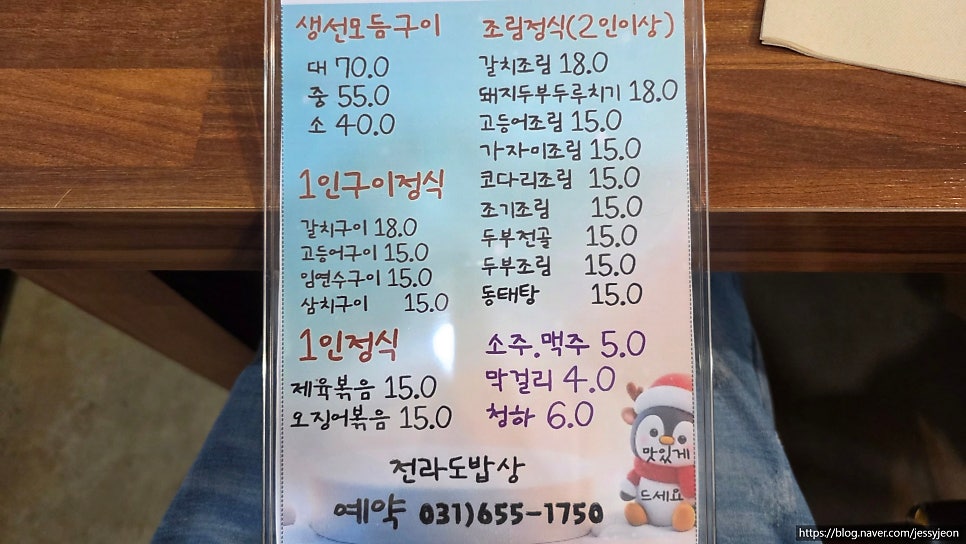 생선모듬구이
대 70.0
중 55.0
소 40.0
1인구이정식
갈치구이 18.0
고등어구이 15.0
임연수구이 15.0
삼치구이 15.0
1인정식
제육볶음 15.0
오징어볶음 15.0
조림정식(2인이상)
갈치조림 18.0
돼지두부두루치기 18.0
고등어조림 15.0
가자미조림 15.0
코다리조림 15.0
조기조림 15.0
두부전골 15.0
두부조림 15.0
동태탕 15.0
소주.맥주 5.0
막걸리 4.0
청하 6.0
맛있게
드세요
전라도밥상
예약 031)655-1750
https://blog.naver.com/jessyjeon